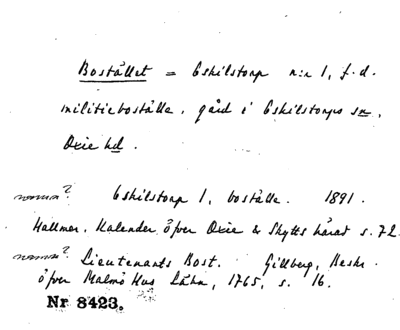 Bostället = Eskilstorp n:r 1, f.d.
militieboställe, gård i Eskilstorps sn,
Oxie hd.
norman? Eskilstorp 1, boställe. 1891.
Hallmer, Kalender öfver Oxie & Skytts härad s. 72.
norman? Lieutenants Bost. Gillberg, Beskr.
öfver Malmö Hus Lähn, 1765, s. 16.
Nr 8423.